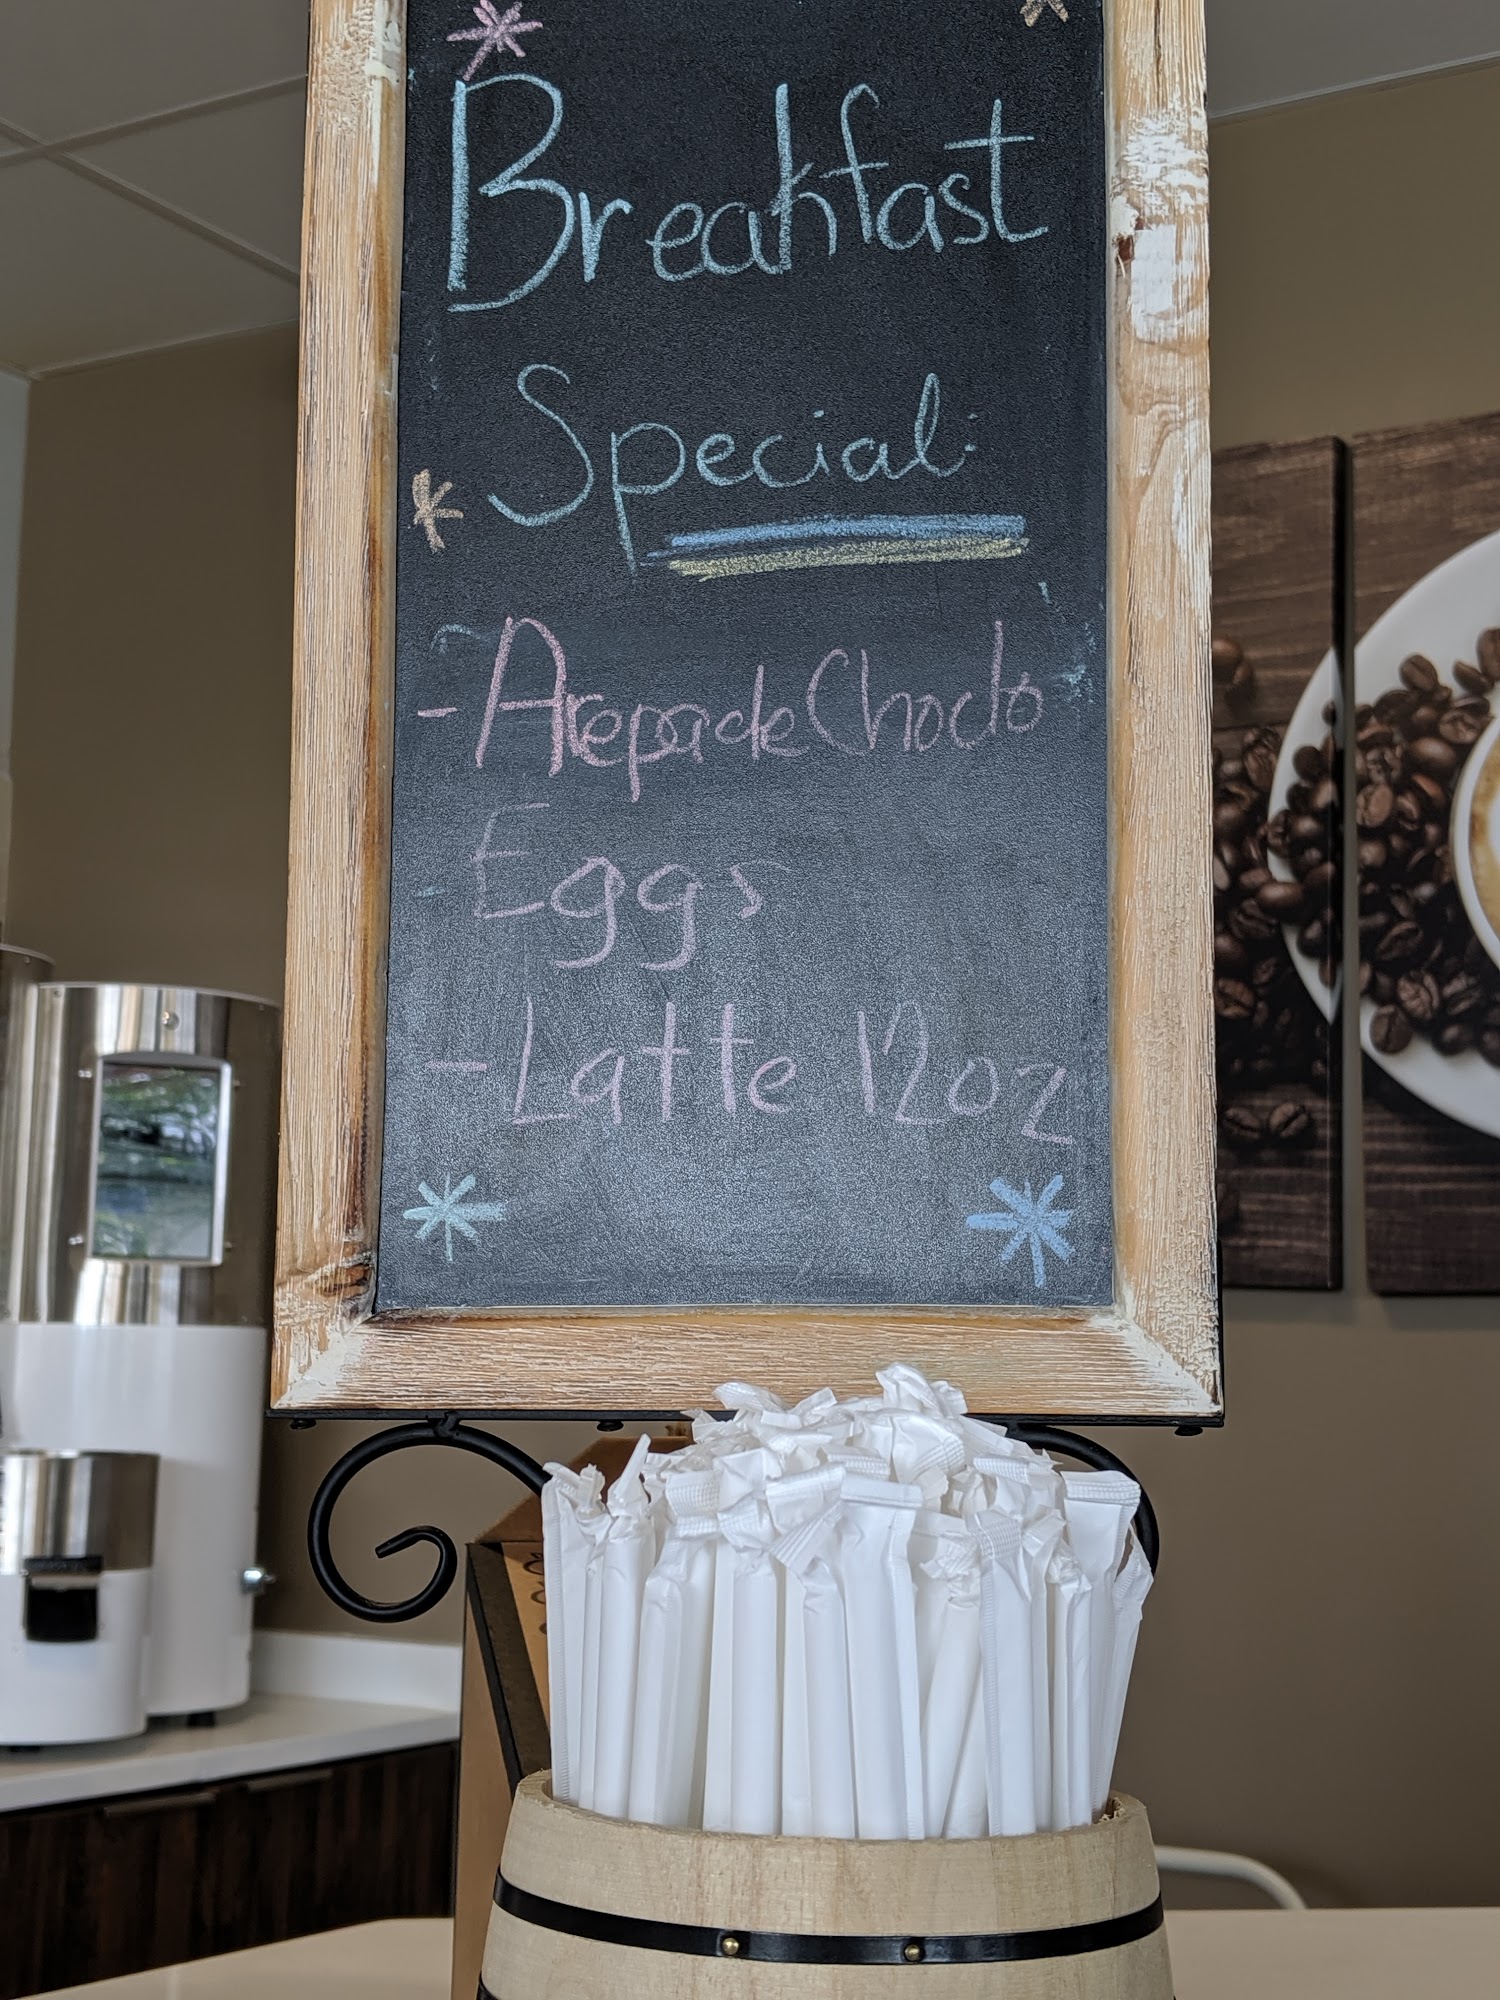 Breakfast
Special:
- Arepa de Choclo
Eggs
- Latte 12oz